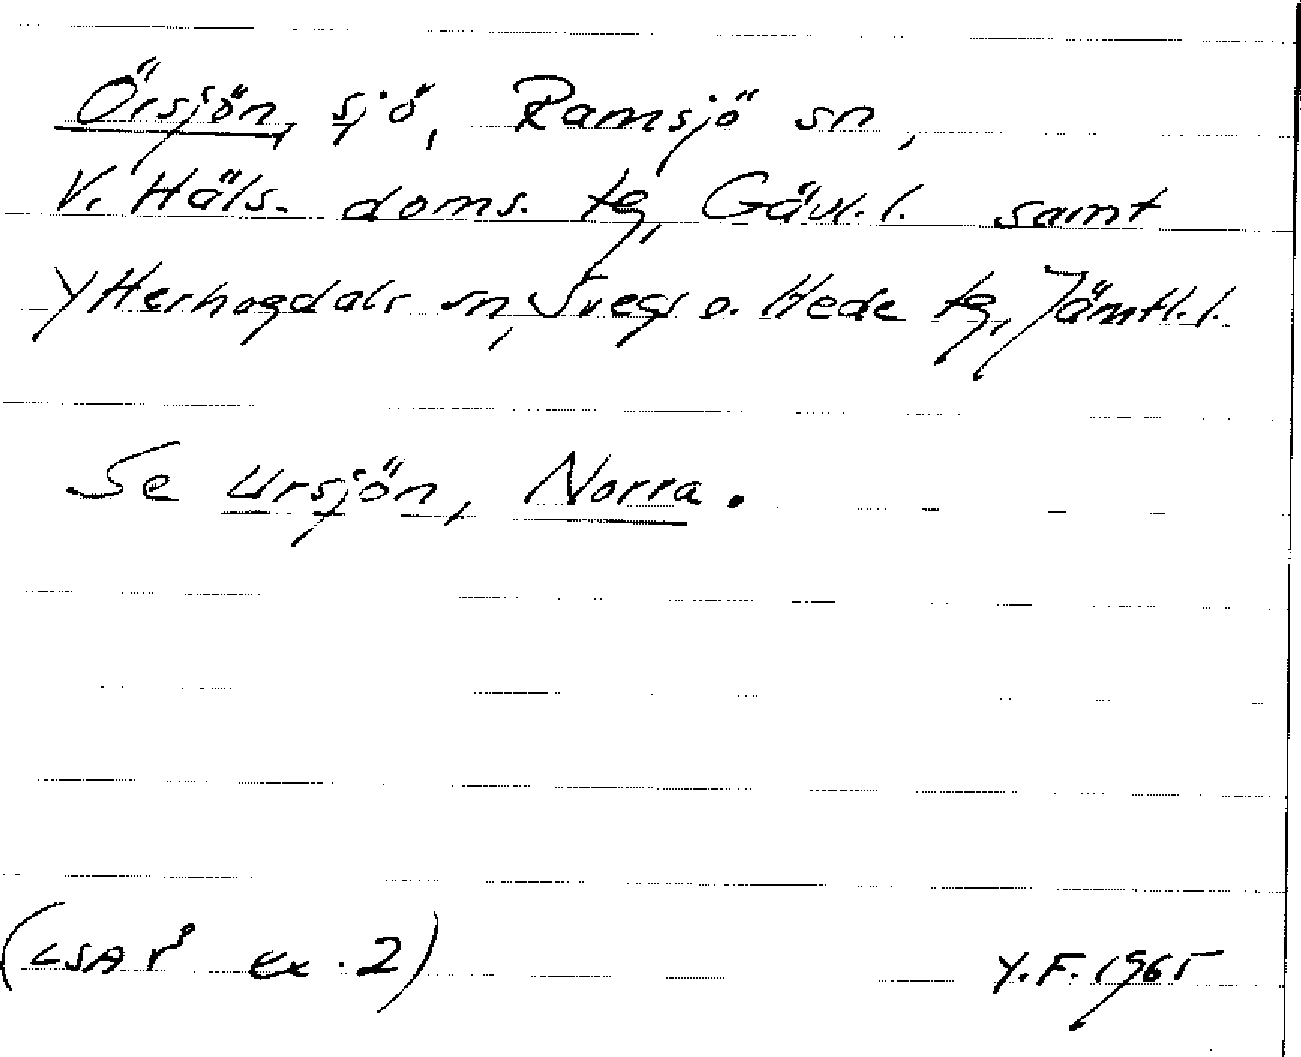 Örsjön, sjö, Ramsjö sn,
V. Häls. doms. tg, Gävl. l. samt
Ytterhogdals sn, Svegs o. Hede tg, Jämtl. l.
Se Ursjön, Norra.
(LSA rs ex. 2)
Y.F. 1965